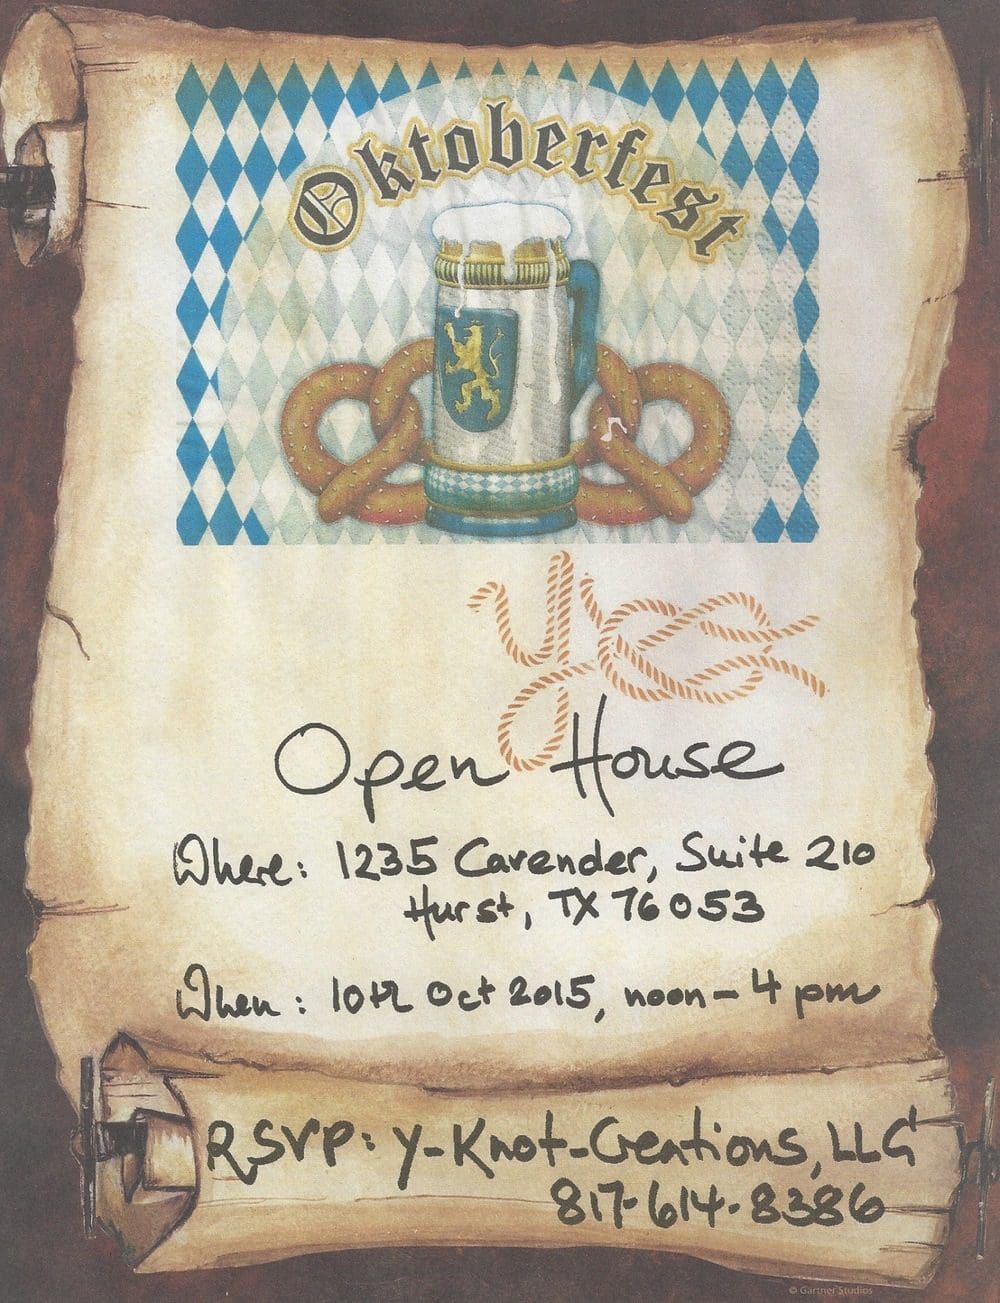 Oktoberfest
YKC
Open House
Where: 1235 Cavender, Suite 210
Hurst, TX 76053
When: 10th Oct 2015, noon - 4 pm
RSVP: Y-Knot-Creations, LLC
817-614-8386
© Gartner Studios